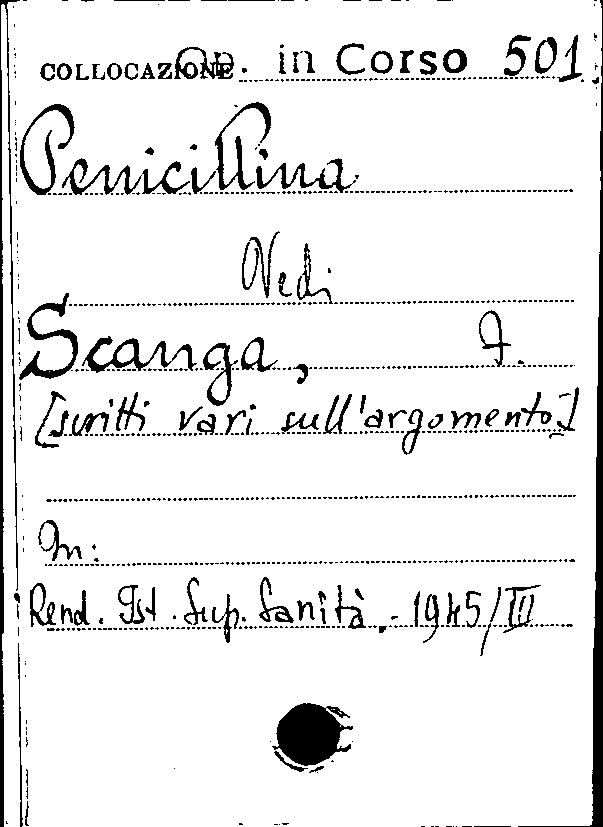 COLLOCAZIONE Op. in Corso 501
Penicillina
Vedi
Scanga, F.
[scritti vari sull'argomento]
In:
Rend. Ist. Sup. Sanità.- 1945/III